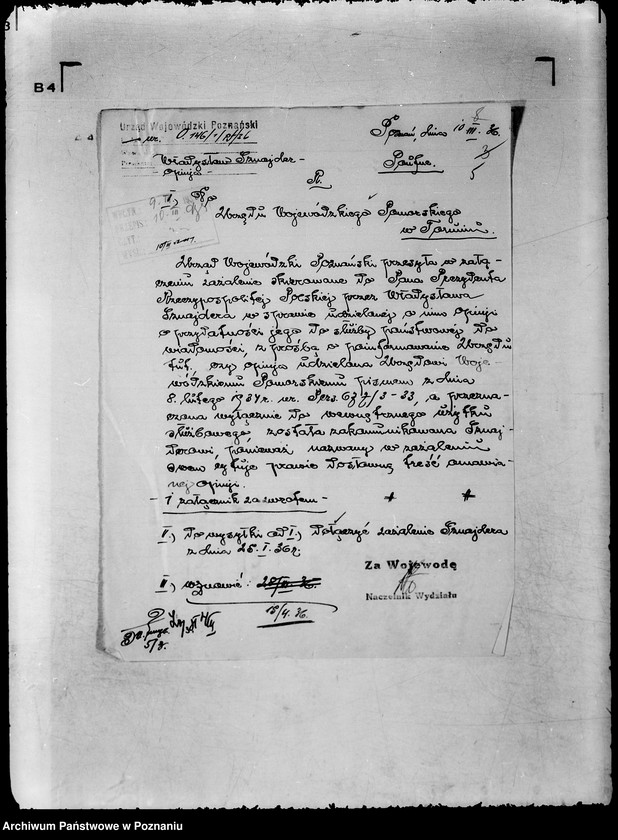 B4
Urząd Wojewódzki Poznański
nr. O. 146/
Poznań, dnia 10 III. 36.
Władysław Sznajder -
opinja -
Poufne.
3/5
R.
I), Do
Urzędu Wojewódzkiego Pomorskiego
w Toruniu
Urząd Wojewódzki Poznański przesyła w załą-
czeniu zażalenie skierowane do Pana Prezydenta
Rzeczypospolitej Polskiej przez Władysława
Sznajdera w sprawie udzielanej o nim opinji
o przydatności jego do służby państwowej, do
wiadomości, z prośbą o poinformowanie Urzędu
tut., czy opinja udzielana Urzędowi Woje-
wódzkiemu Pomorskiemu pismem z dnia
8. lutego 1934 r. nr. Prs. 3-33, a przezna-
czona wyłącznie do wewnętrznego użytku
służbowego została zakomunikowana Sznaj-
derowi, ponieważ nazwany w zażaleniu
swem cytuje prawie dosłowną treść omawia-
nej opinji.
- 1 załącznik za zwrotem -
II), Do wysyłki ad I.) Dołączyć zażalenie Sznajdera
z dnia 25. I. 36 r.
Za Wojewodę
II), wznowić:
15/4. 36.
Naczelnik Wydziału
5/3.
Archiwum Państwowe w Poznaniu